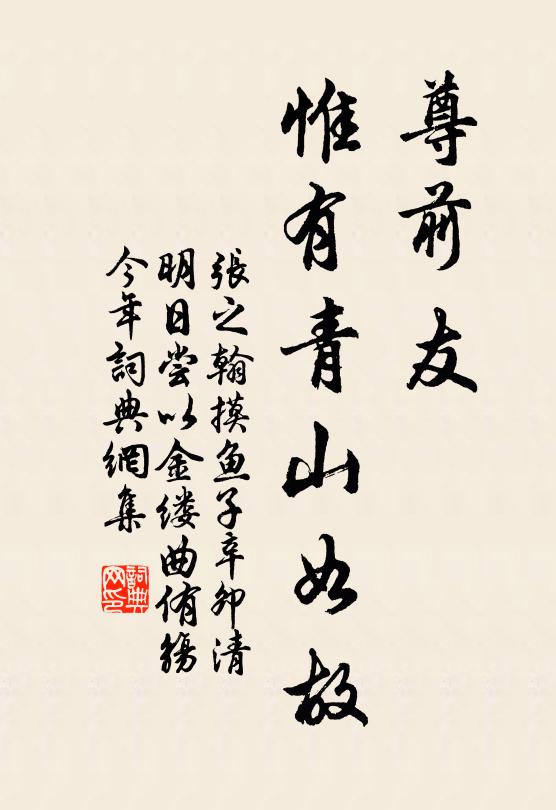 尊前友
惟有青山如故
張之翰摸魚子辛卯清
明日嘗以金缕曲侑觴
今年詞典網集
詞典
网印